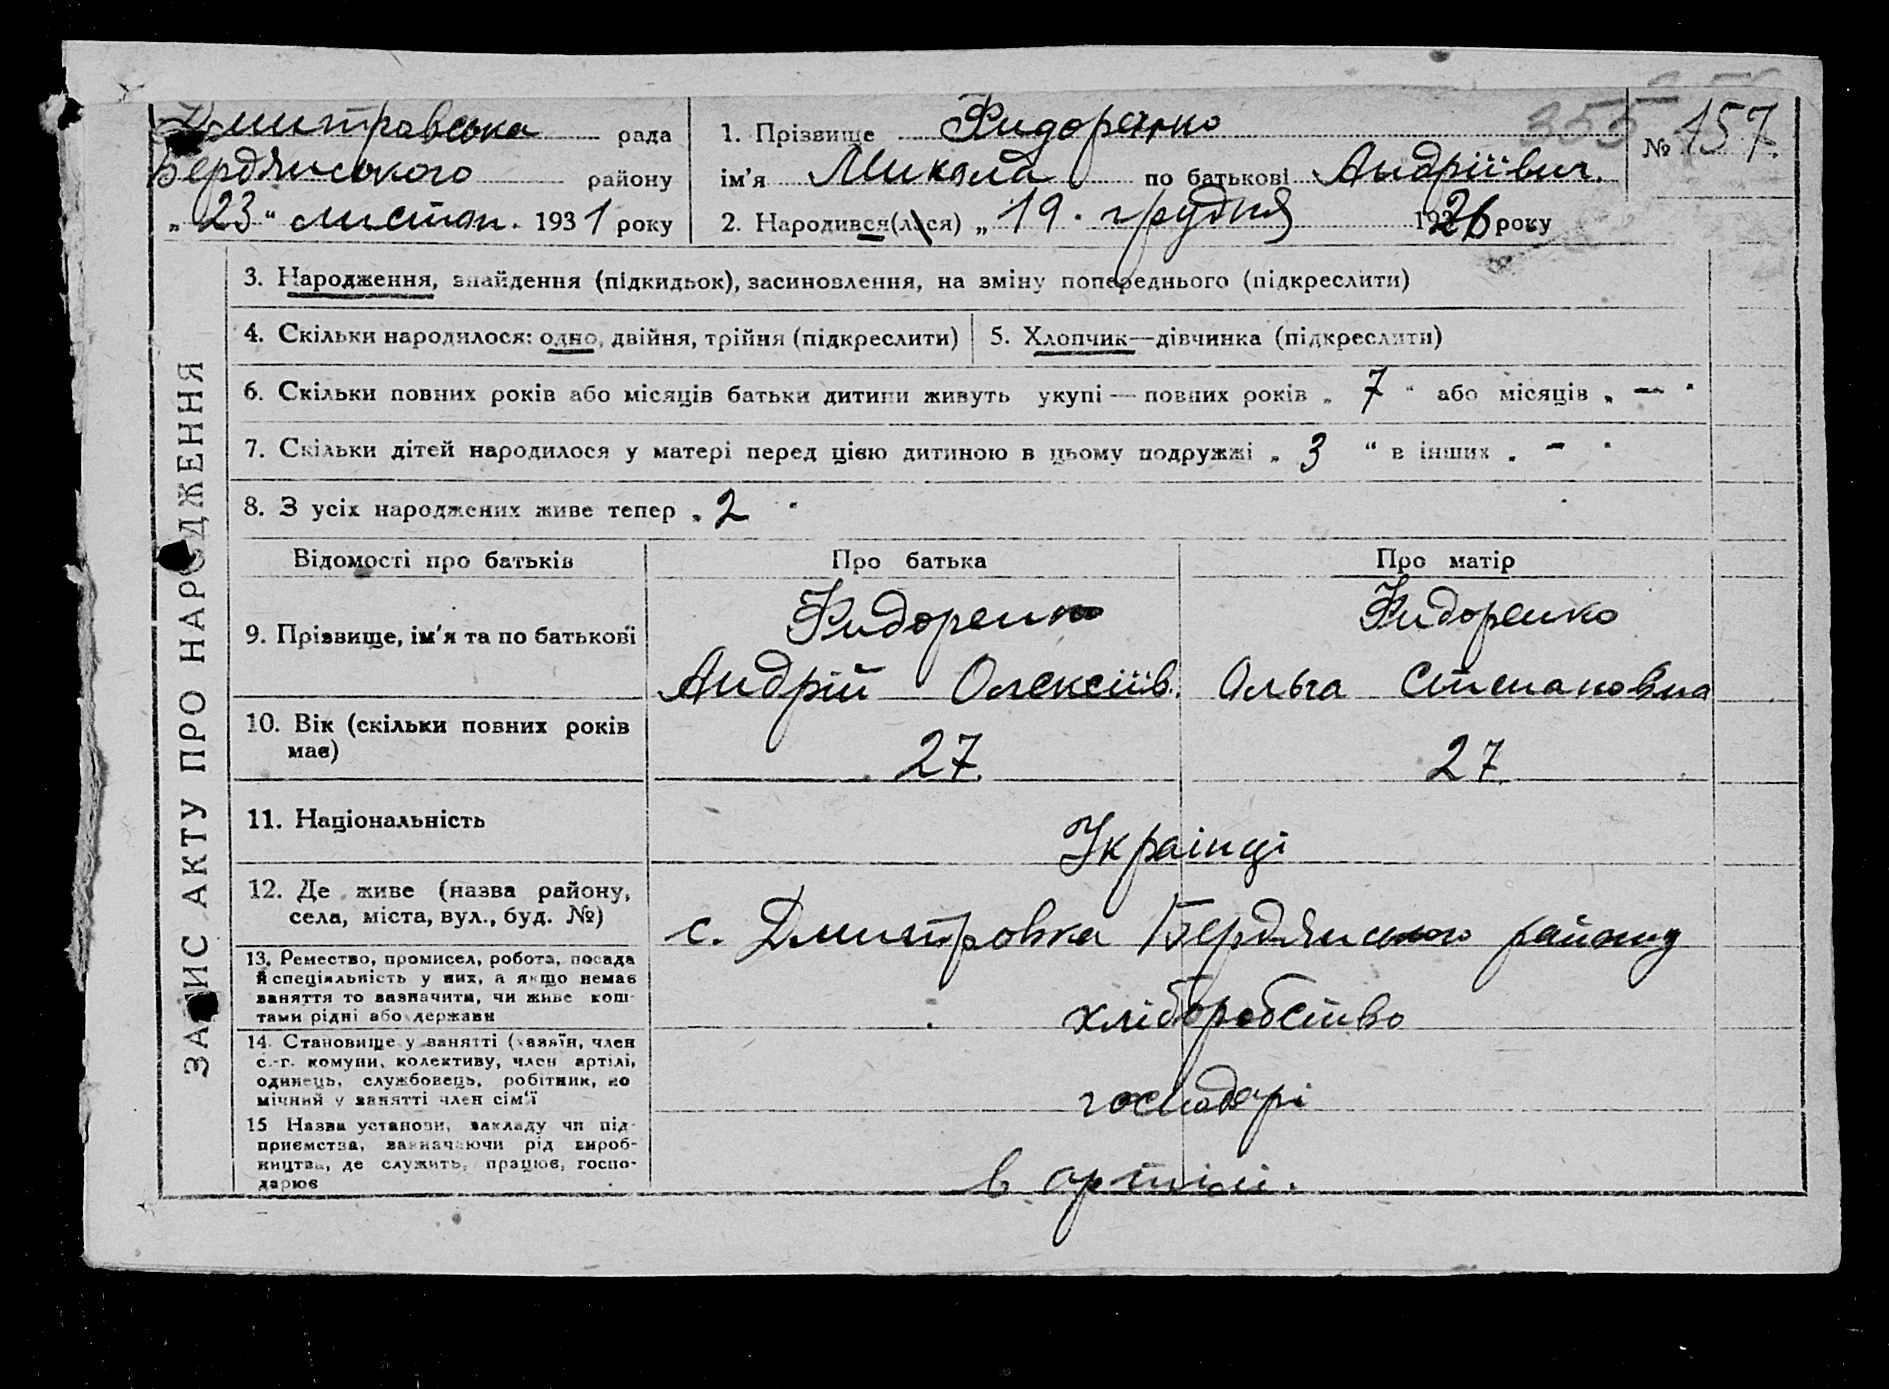 Дмитравська рада
Бердянського району
„ 23 “ листоп. 1931 року
1. Прізвище Фидоренко
ім’я Микола по батькові Андріївич.
2. Народився(лася) „ 19 . грудня 1926 року
355
№ 157.
ЗАПИС АКТУ ПРО НАРОДЖЕННЯ
3. Народження, знайдення (підкидьок), засиновлення, на зміну попереднього (підкреслити)
4. Скільки народилося: одно, двійня, трійня (підкреслити)
5. Хлопчик—дівчинка (підкреслити)
6. Скільки повних років або місяців батьки дитини живуть укупі — повних років „ 7 “ або місяців „ — “
7. Скільки дітей народилося у матері перед цією дитиною в цьому подружжі „ 3 “ в інших „ - “
8. З усіх народжених живе тепер „ 2 “
Відомості про батьків
Про батька
Про матір
9. Прізвище, ім’я та по батькові
Фидоренко
Андрій Олексіїв.
Фидоренко
Ольга Степановна
10. Вік (скільки повних років має)
27
27
11. Національність
Українці
12. Де живе (назва району,
села, міста, вул., буд. №)
с. Дмитровка Бердянського району
13. Ремество, промисел, робота, посада
й спеціяльність у них, а якщо немає
заняття то зазначити, чи живе кош-
тами рідні або держави
хліборобство
14. Становище у занятті (хазяїн, член
с.-г. комуни, колективу, член артілі,
одинець, службовець, робітник, по
мічний у занятті член сім’ї
господарі
15 Назва установи, закладу чи під-
приємства, зазначаючи рід вироб-
ництва, де служить, працює, госпо-
дарює
в артілі.